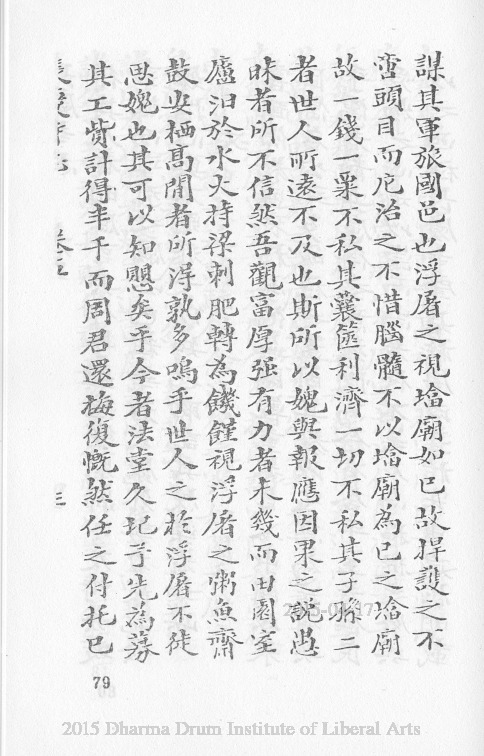 謀其軍旅國邑也浮屠之視墖廟如已故捍護之不
啻頭目而庀治之不惜腦髓不以墖廟為已之墖廟
故一錢一粟不私其囊篋利濟一切不私其子孫二
者世人所遠不及也斯所以媿與報應因果之說愚
昧者所不信然吾觀富厚强有力者未幾而田園室
廬汩於水火持梁刺肥轉為饑饉視浮屠之粥魚齋
鼓安栖高閒者所得孰多嗚乎世人之於浮屠不徒
思媿也其可以知愳矣乎今者法堂久圮予先為募
其工貲計得半千而周君還梅復慨然任之付托已
卷五
三
79
2015 Dharma Drum Institute of Liberal Arts